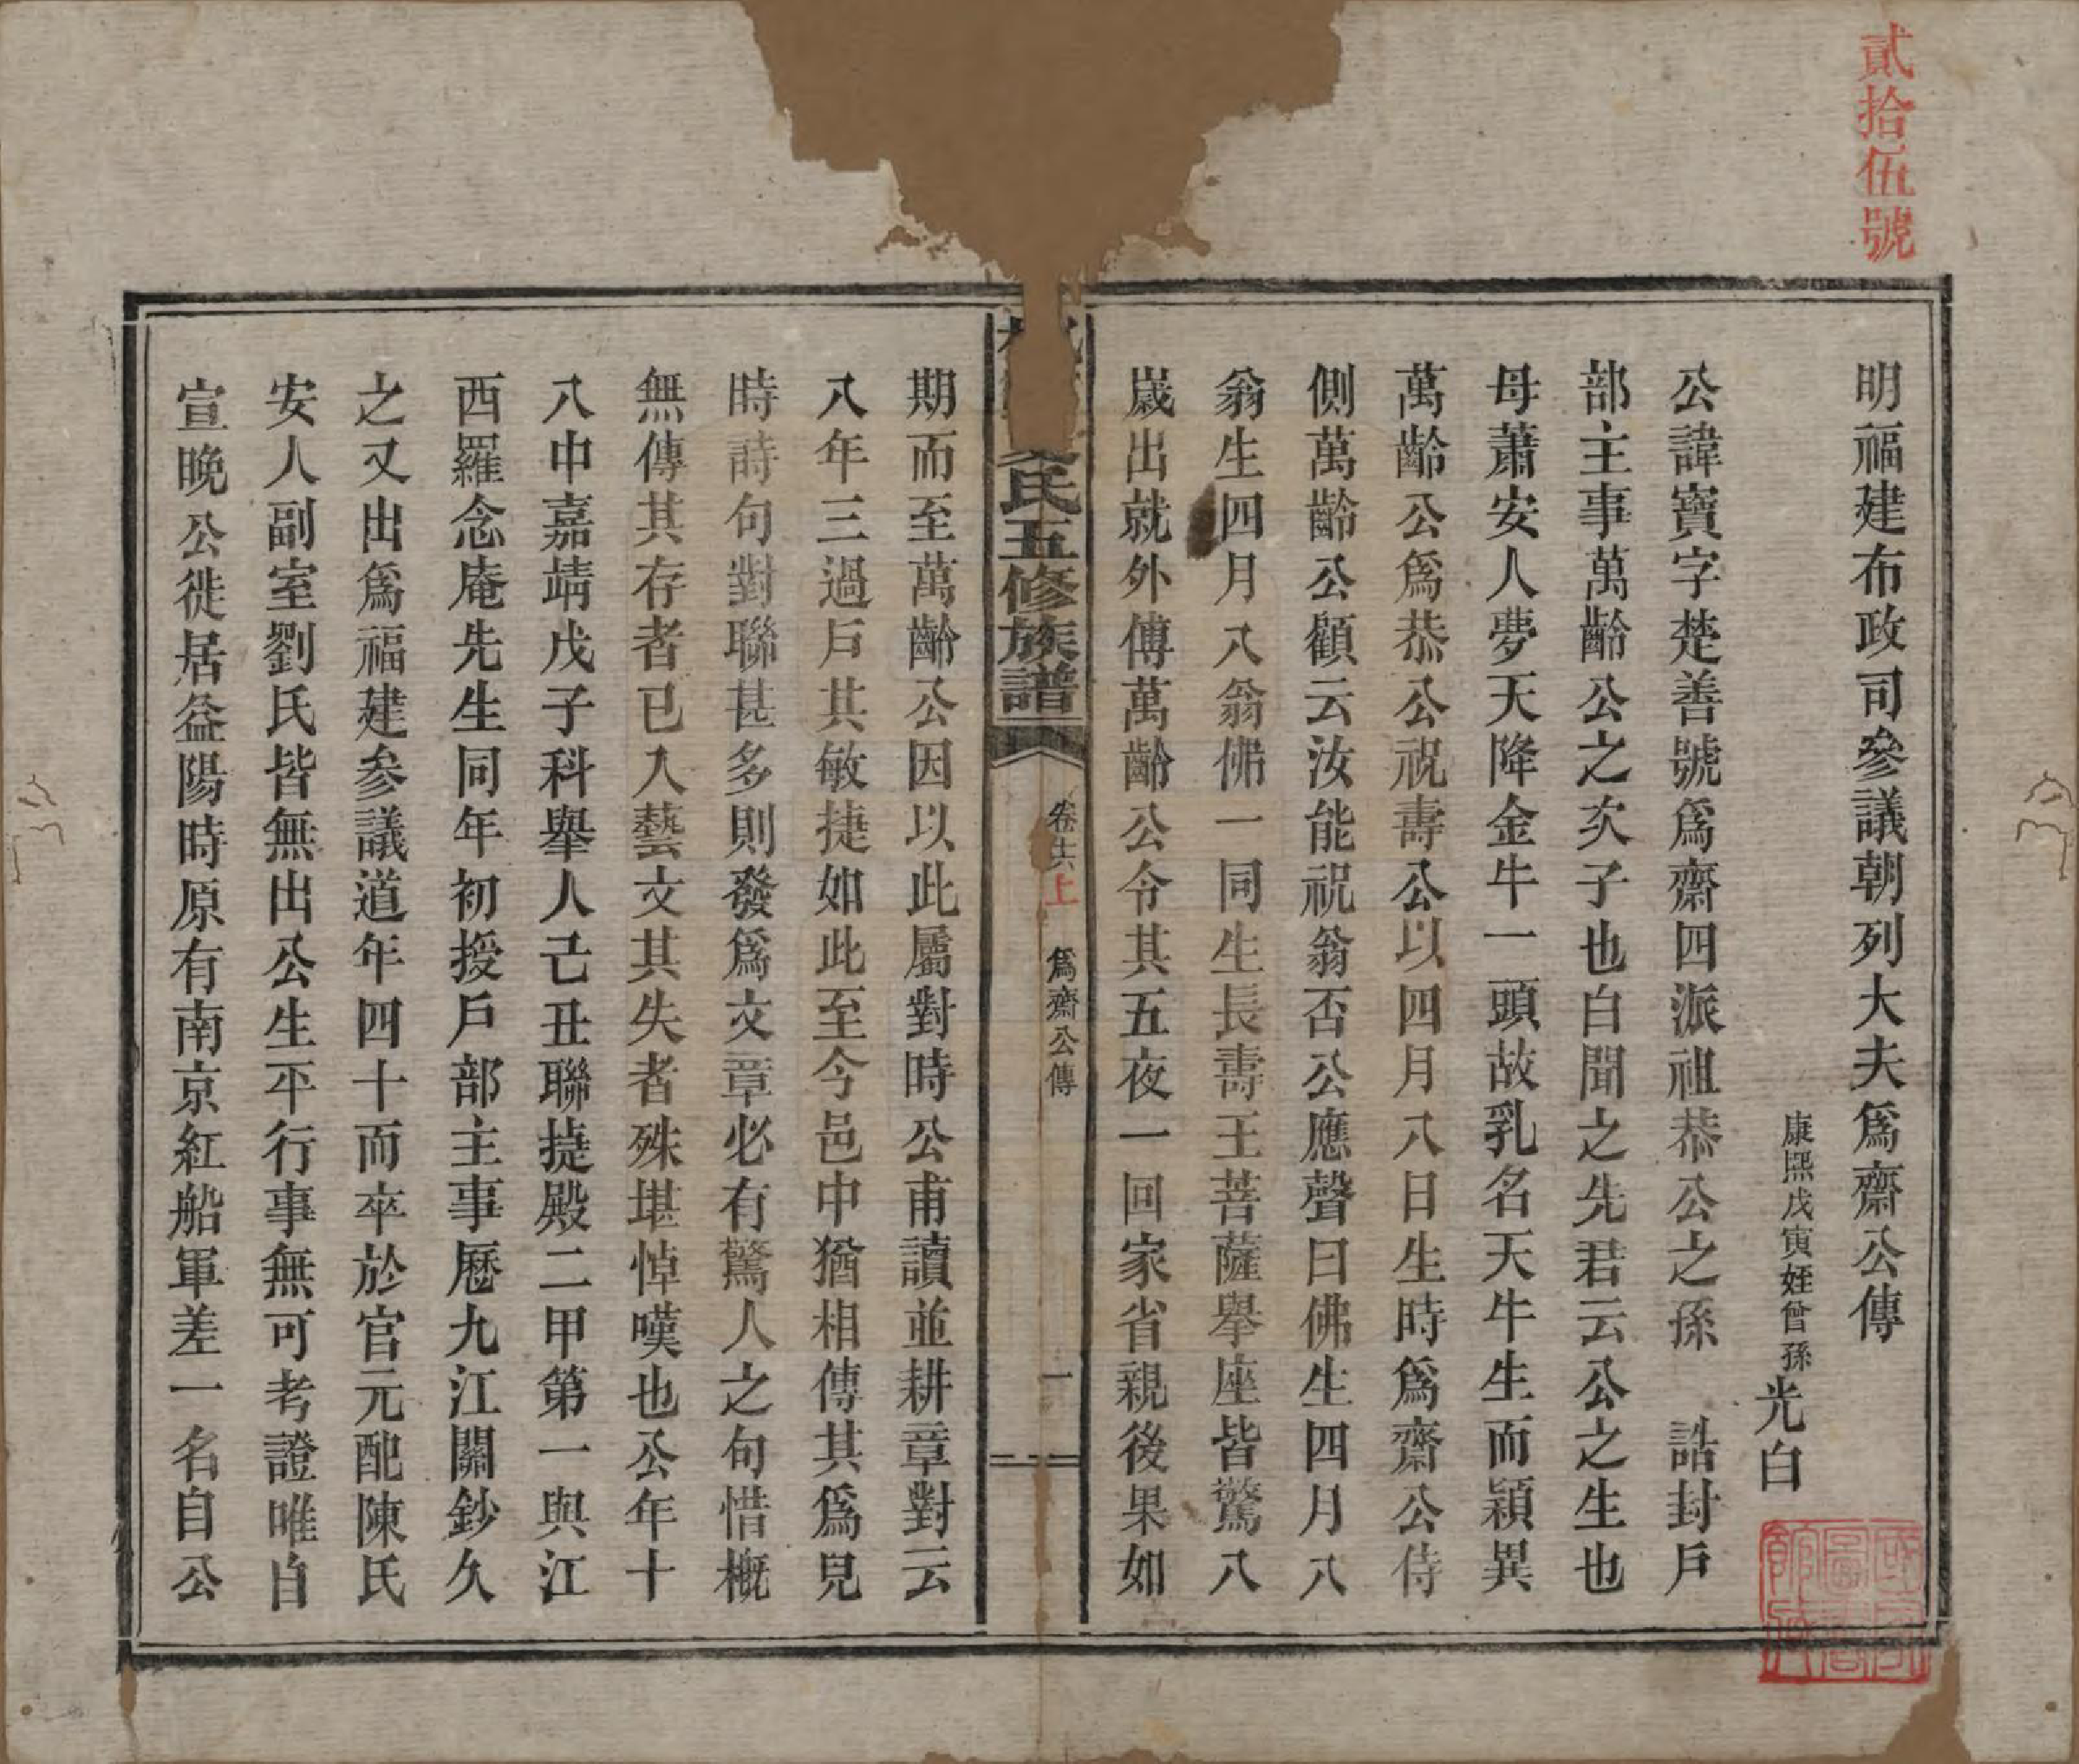 貳拾伍號
明福建布政司參議朝列大夫爲齋公傳
康熙戊寅姪曾孫光白
公諱寶字楚善號爲齋四派祖恭公之孫　誥封戶
部主事萬齡公之次子也白聞之先君云公之生也
母蕭安人夢天降金牛一頭故乳名天牛生而穎異
萬齡公爲恭公祝壽公以四月八日生時爲齋公侍
側萬齡公顧云汝能祝翁否公應聲曰佛生四月八
翁生四月八翁佛一同生長壽王菩薩舉座皆驚八
歲出就外傅萬齡公令其五夜一回家省親後果如
氏五修族譜
卷廿六上
爲齋公傳
一
期而至萬齡公因以此屬對時公甫讀並耕章對云
八年三過戶其敏捷如此至今邑中猶相傳其爲兒
時詩句對聯甚多則發爲文章必有驚人之句惜概
無傳其存者已入藝文其失者殊堪悼嘆也公年十
八中嘉靖戊子科舉人己丑聯㨗殿二甲第一與江
西羅念庵先生同年初授戶部主事歷九江關鈔久
之又出爲福建參議道年四十而卒於官元配陳氏
安人副室劉氏皆無出公生平行事無可考證唯自
宣晚公徙居益陽時原有南京紅船軍差一名自公
國家圖書館藏